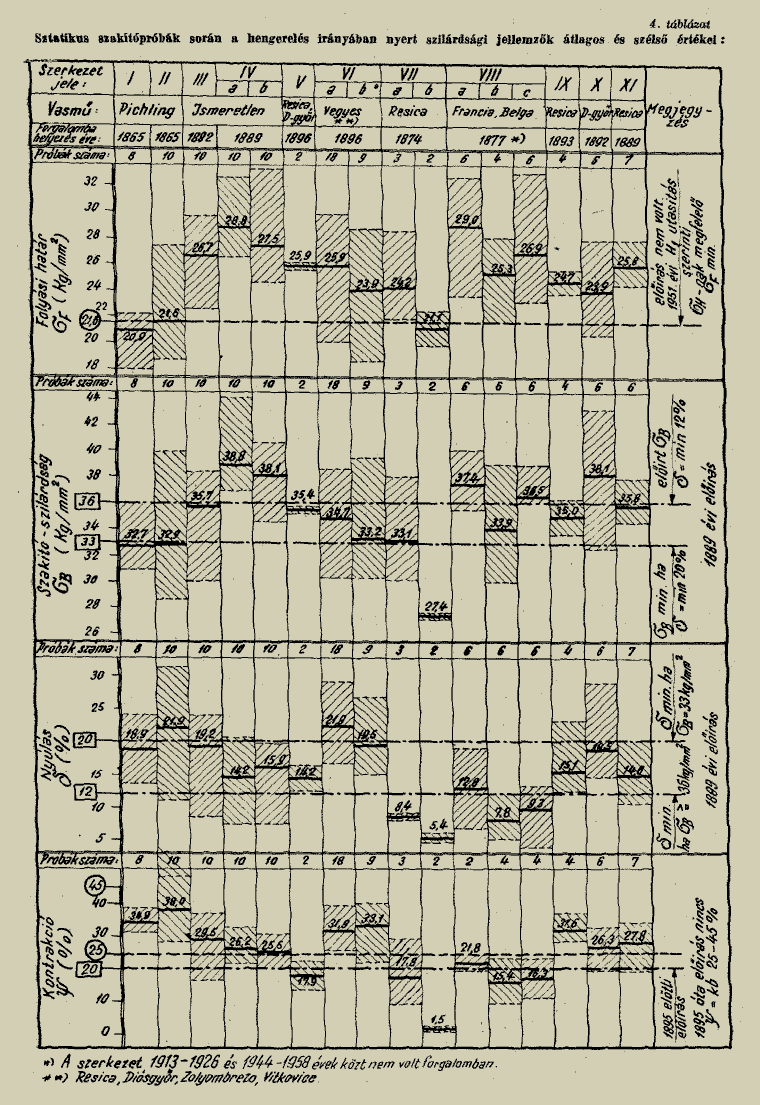 4. táblázat
Sztatikus szakítópróbák során a hengerelés irányában nyert szilárdsági jellemzők átlagos és szélső értékei:
Szerkezet jele: I II III IV V VI VII VIII IX X XI
a b a b a b a b c
Vasmű: Pichling Ismeretlen Resica, D-győr Vegyes **) Resica Francia, Belga Resica D-győr Resica Megjegyzés
Forgalomba helyezés éve: 1865 1865 1892 1889 1896 1896 1874 1877 *) 1893 1892 1889
Próbák száma: 8 10 10 10 10 2 18 9 3 2 6 6 6 4 6 7
Folyási határ
σF (Kg/mm²)
32
30
28
26
24
22
21,6
20
18
20,9 21,6 26,7 28,8 27,5 25,9 25,9 23,9 24,2 21,7 29,0 25,3 26,9 24,7 23,9 25,8
előírás nem volt.
1951. évi H. utasítás
szerinti
σH-nak megfelelő
σF min.
Próbák száma: 8 10 10 10 10 2 18 9 3 2 6 6 6 4 6 6
Szakító-szilárdság
σB (Kg/mm²)
44
42
40
38
36
34
33
32
30
28
26
32,7 32,9 35,7 38,8 38,1 35,4 34,7 33,2 33,1 27,4 37,4 33,9 36,5 35,0 38,1 35,8
előírt σB
δ = min 12%
σB min. ha
δ = min 20%
1889 évi előírás
Próbák száma: 8 10 10 10 10 2 18 9 3 2 6 6 6 4 6 7
Nyúlás
δ (%)
30
25
20
15
12
10
5
18,9 21,9 19,2 14,2 15,9 14,2 21,9 19,5 8,4 5,4 12,8 7,8 9,3 15,1 18,5 14,8
δ min. ha
σB=33kg/mm²
δ min.
ha σB ≥ 36kg/mm²
1889 évi előírás
Próbák száma: 8 10 10 10 10 2 18 9 3 2 2 4 4 4 6 7
Kontrakció
ψ (%)
45
40
30
25
20
10
0
34,9 38,0 29,5 26,2 25,5 17,9 31,9 33,1 17,8 1,5 21,8 15,4 16,3 31,6 26,3 27,8
1895 előtti
előírás
1895 óta előírás nincs
ψ = kb 25-45%
*) A szerkezet 1913-1926 és 1944-1958 évek közt nem volt forgalomban.
**) Resica, Diósgyőr, Zolyombrezo, Vitkovice